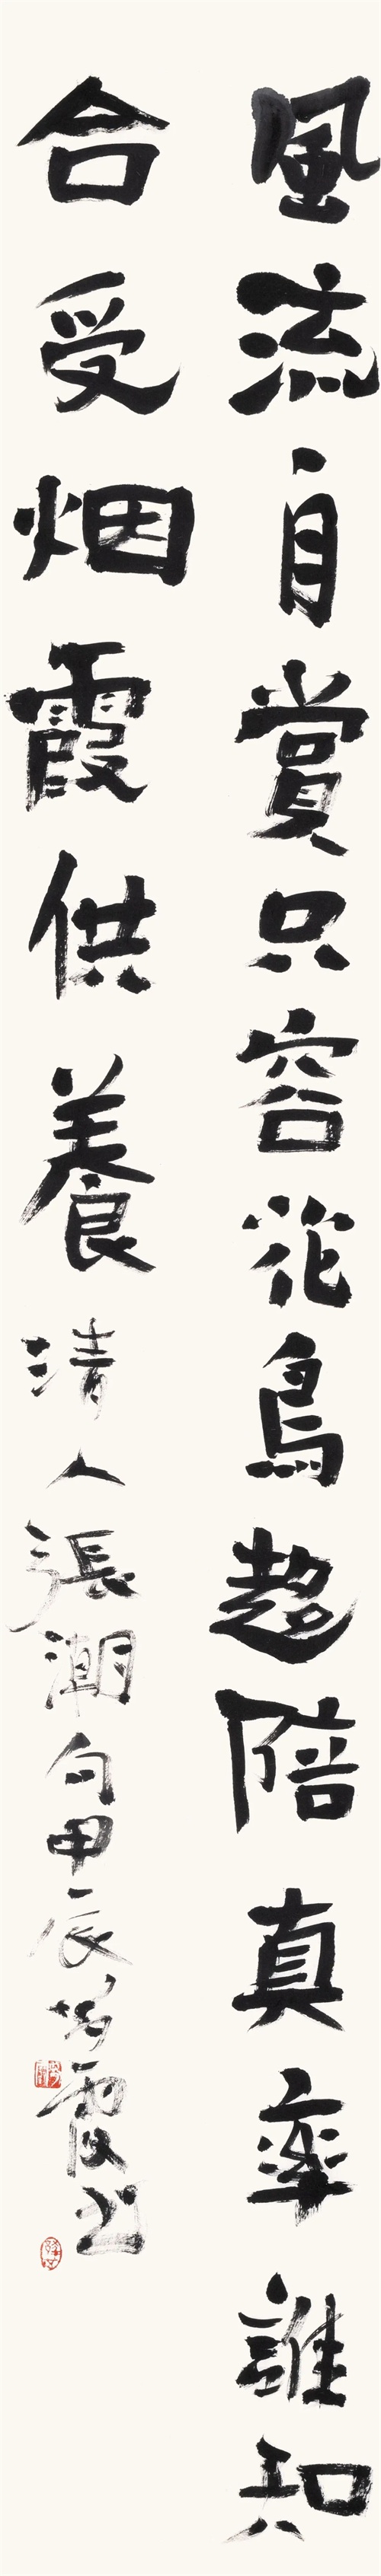 風流自賞只容花鳥趨陪真率誰知
合受烟霞供養清人張潮句甲辰霞书